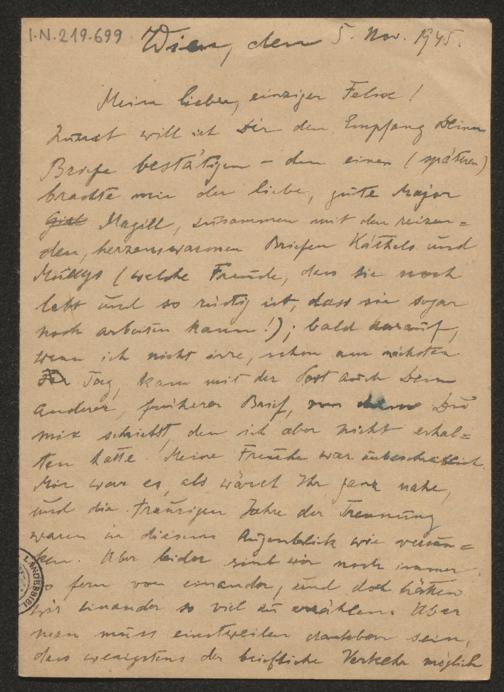 I.N. 219.699
Wien, den 5. Nov. 1945.
Mein lieber, einziger Felix!
Zuerst will ich Dir den Empfang Deiner
Briefe bestätigen – den einen (späteren)
brachte mir der liebe, gute Major
Magill, zusammen mit den reizen=
den, herzenswarmen Briefen Käthels und
Muttys (welche Freude, dass sie noch
lebt und so rüstig ist, dass sie sogar
noch arbeiten kann!); bald darauf,
wenn ich nicht irre, schon am nächsten
Tag, kam mit der Post auch Dein
anderer, früherer Brief, von dem Du
mir schriebst, den ich aber nicht erhal=
ten hatte. Meine Freude war unbeschreiblich.
Mir war es, als wäret Ihr ganz nahe,
und die traurigen Jahre der Trennung
waren in diesem Augenblick wie versun=
ken. Aber leider sind wir noch immer
so fern von einander, und doch hätten
wir einander so viel zu erzählen. Aber
man muss einstweilen dankbar sein,
dass wenigstens der briefliche Verkehr möglich